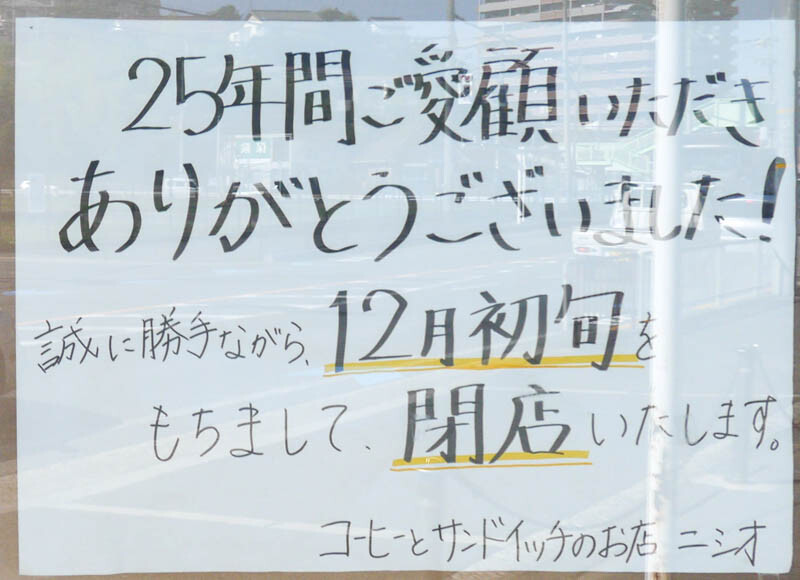 25年間ご愛顧いただき
ありがとうございました!
誠に勝手ながら、12月初旬を
もちまして、閉店いたします。
コーヒーとサンドイッチのお店 ニシオ